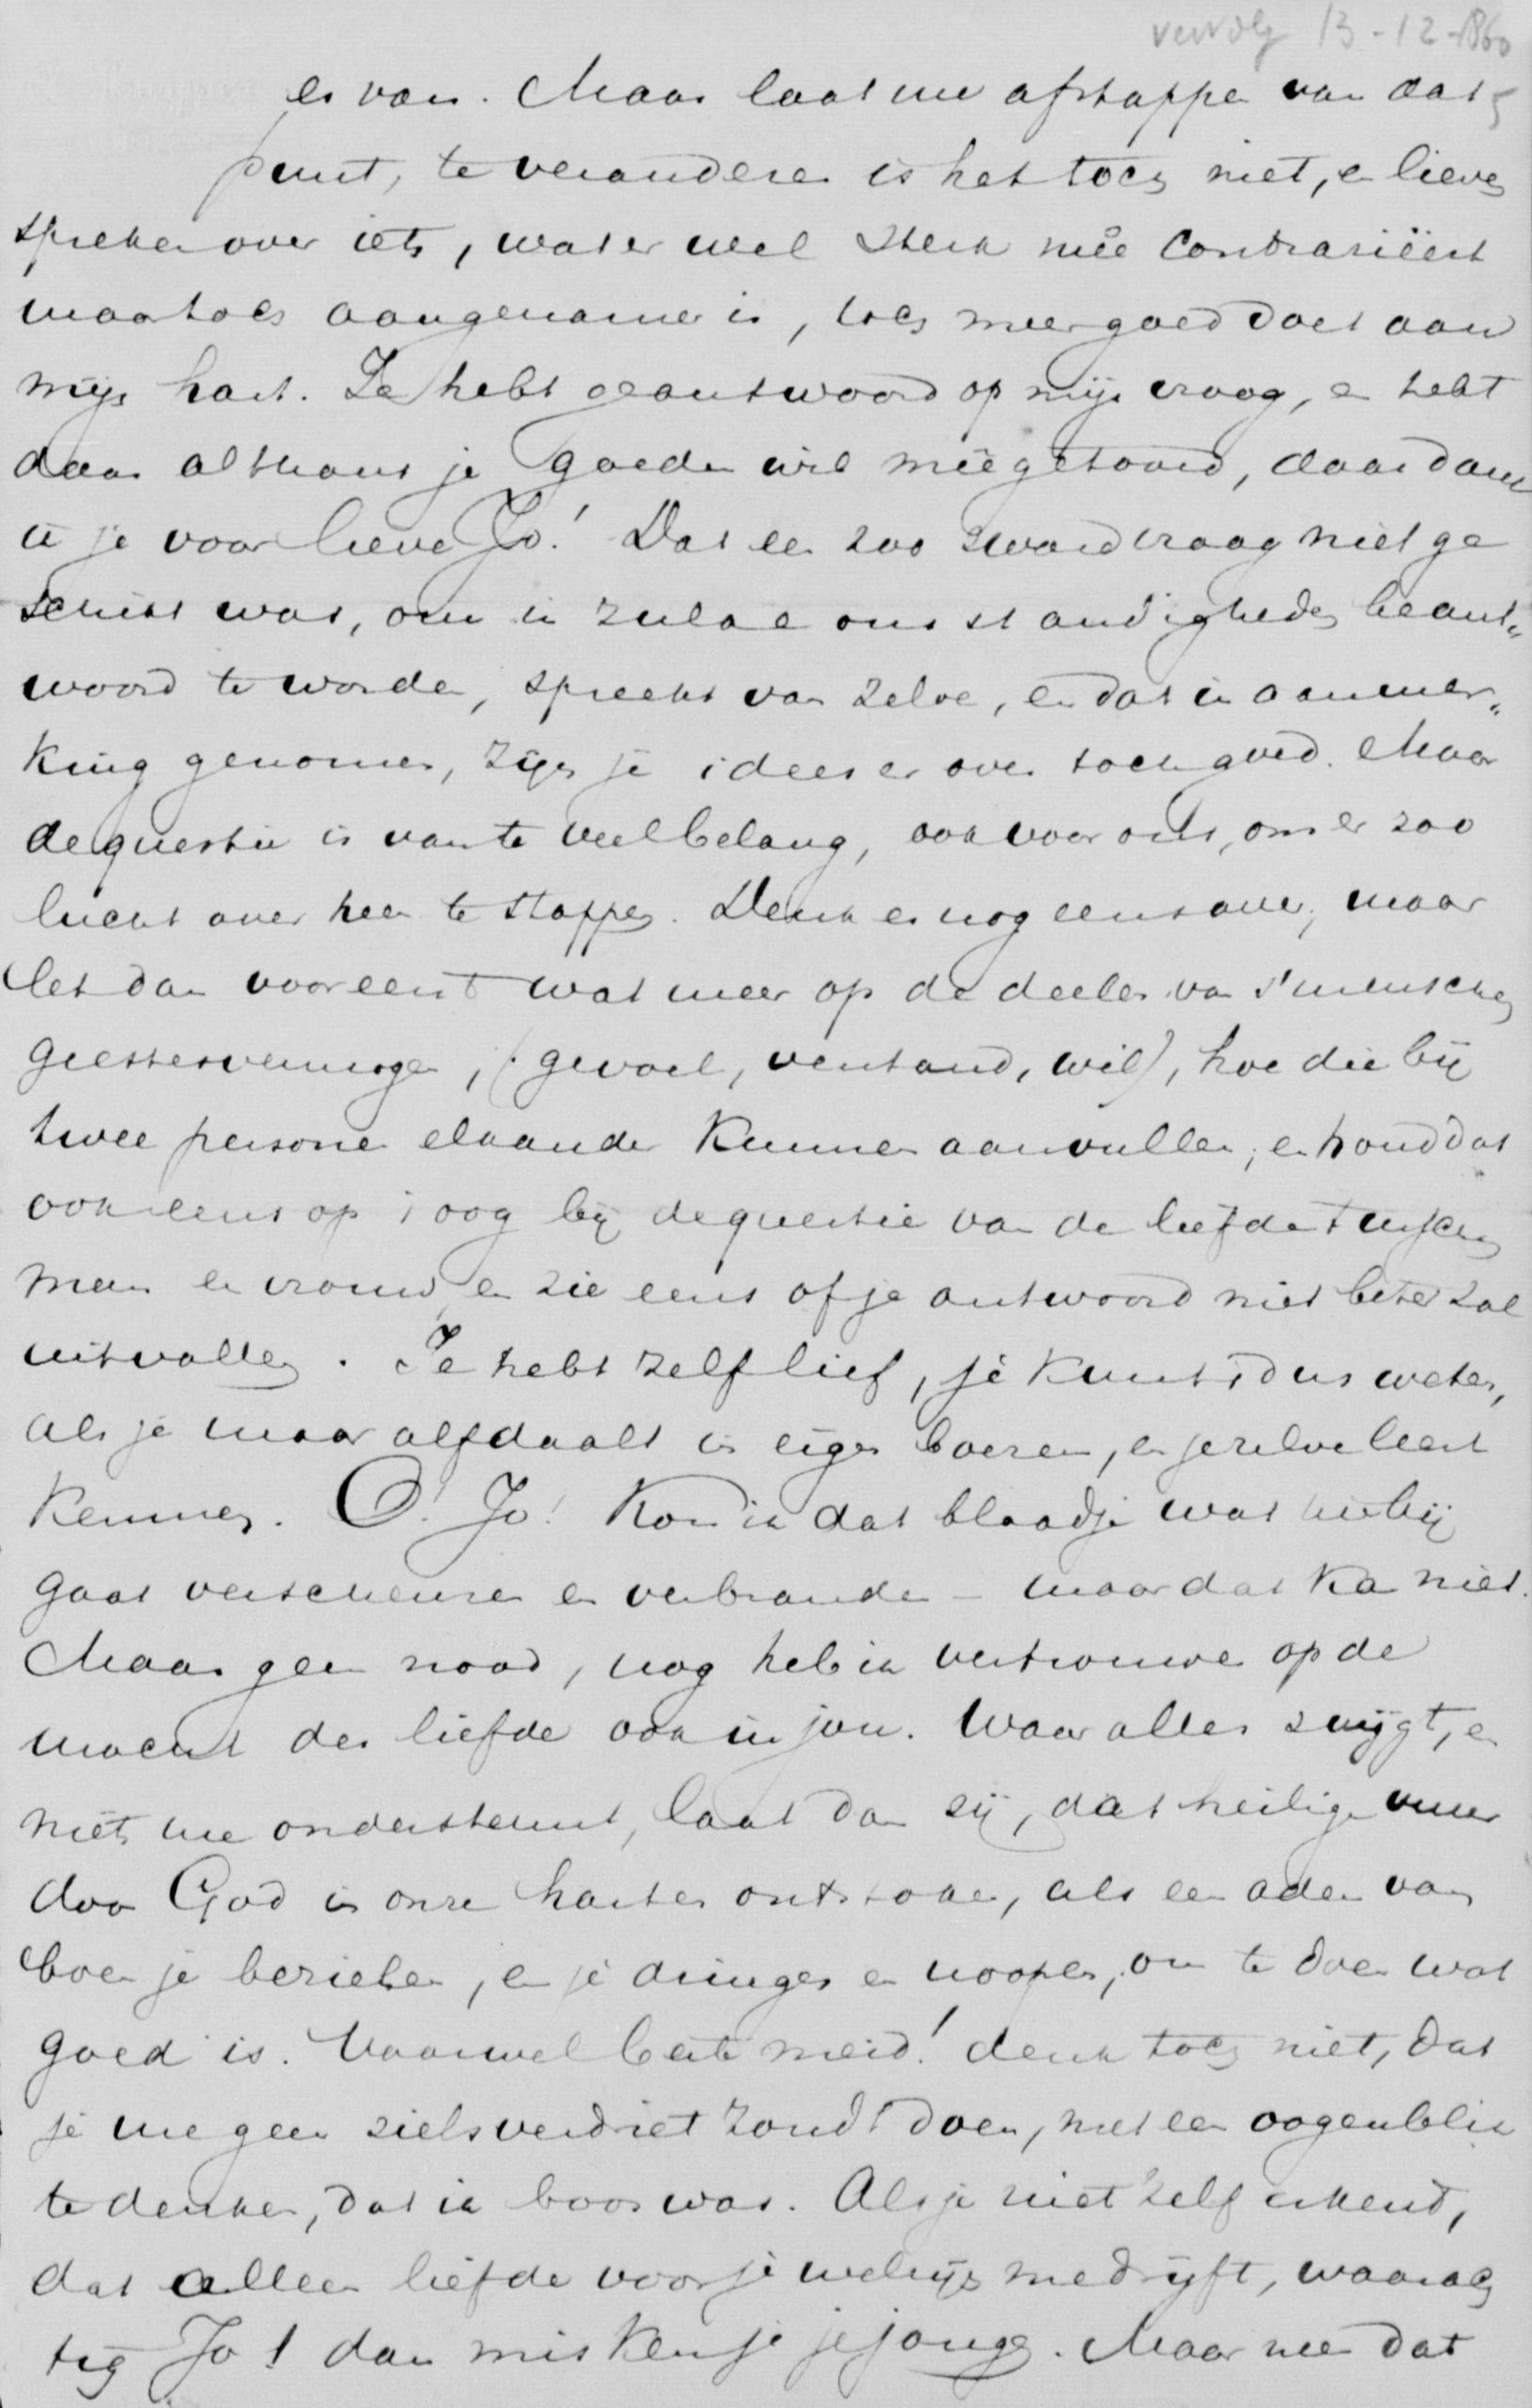 vervolg 13-12-1860
er van. Maar laat me afstappen van dat
punt, te veranderen is het toch niet, en liever
spreken over iets, wat er wel sterk meê contrariëert
maar toch aangenamer is, toch meer goed doet aan
mijn hart. Je hebt geantwoord op mijn vraag, en hebt
daar althans je goeden wil meê getoond, daar dank
ik je voor lieve Jo! Dat een zoo zware vraag niet ge
schikt was, om in zulke omstandigheden beant„
woord te worden, spreekt van zelve, en dat in aanmer„
king genomen, zijn je ideen er over toch goed. Maar
de questie is van te veel belang, ook voor ons, om er zoo
licht over heen te stappen. Denk er nog eens over, maar
let dan vooreerst wat meer op de deelen van s'menschen
geestesvermogen, (gevoel, verstand, wil), hoe die bij
twee personen elkander kunnen aanvullen, en houd dat
ook eens op 't oog bij de questie van de liefde tusschen
man en vrouw, en zie eens of je antwoord niet beter zal
uitvallen. Je hebt zelf lief, je kunt 't dus weten,
als je maar afdaalt in eigen boezem, en jezelve leert
kennen. O! Jo! Kon ik dat blaadje wat hierbij
gaat verscheuren en verbranden – maar dat kan niet.
Maar geen nood, nog heb ik vertrouwen op de
macht der liefde ook in jou. Waar alles zwijgt, en
niets me ondersteunt, laat dan zij, dat heilige vuur
door God in onze harten ontstoken, als een adem van
boven je bezielen, en je dringen en noopen, om te doen wat
goed is. Vaarwel beste meid! denk toch niet, dat
je me geen zielsverdriet zoudt doen, met een oogenblik
te denken, dat ik boos was. Als je niet zelf erkend,
dat alleen liefde voor je welzijn me drijft, waarach
tig Jo! dan misken je je jonge. Maar nee dat